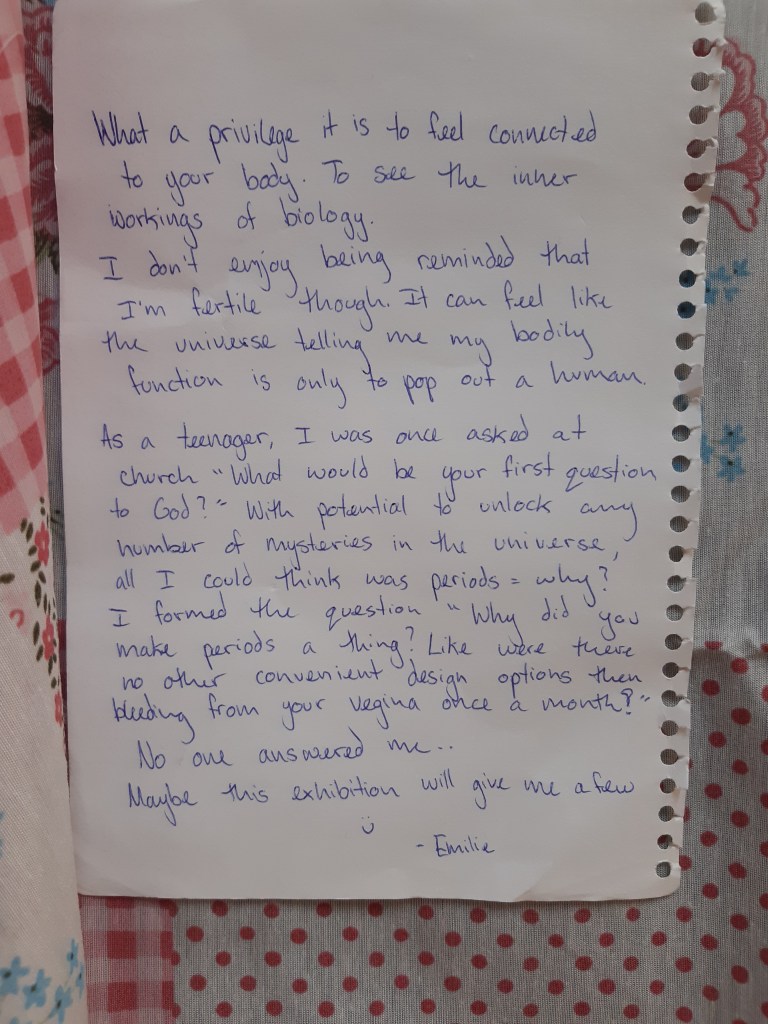 What a privilege it is to feel connected
to your body. To see the inner
workings of biology.
I don't enjoy being reminded that
I'm fertile though. It can feel like
the universe telling me my bodily
function is only to pop out a human.
As a teenager, I was once asked at
church "What would be your first question
to God?" With potential to unlock any
number of mysteries in the universe,
all I could think was periods = why?
I formed the question "Why did you
make periods a thing? Like were there
no other convenient design options then
bleeding from your vegina once a month?"
No one answered me...
Maybe this exhibition will give me a few
ü
- Emilie